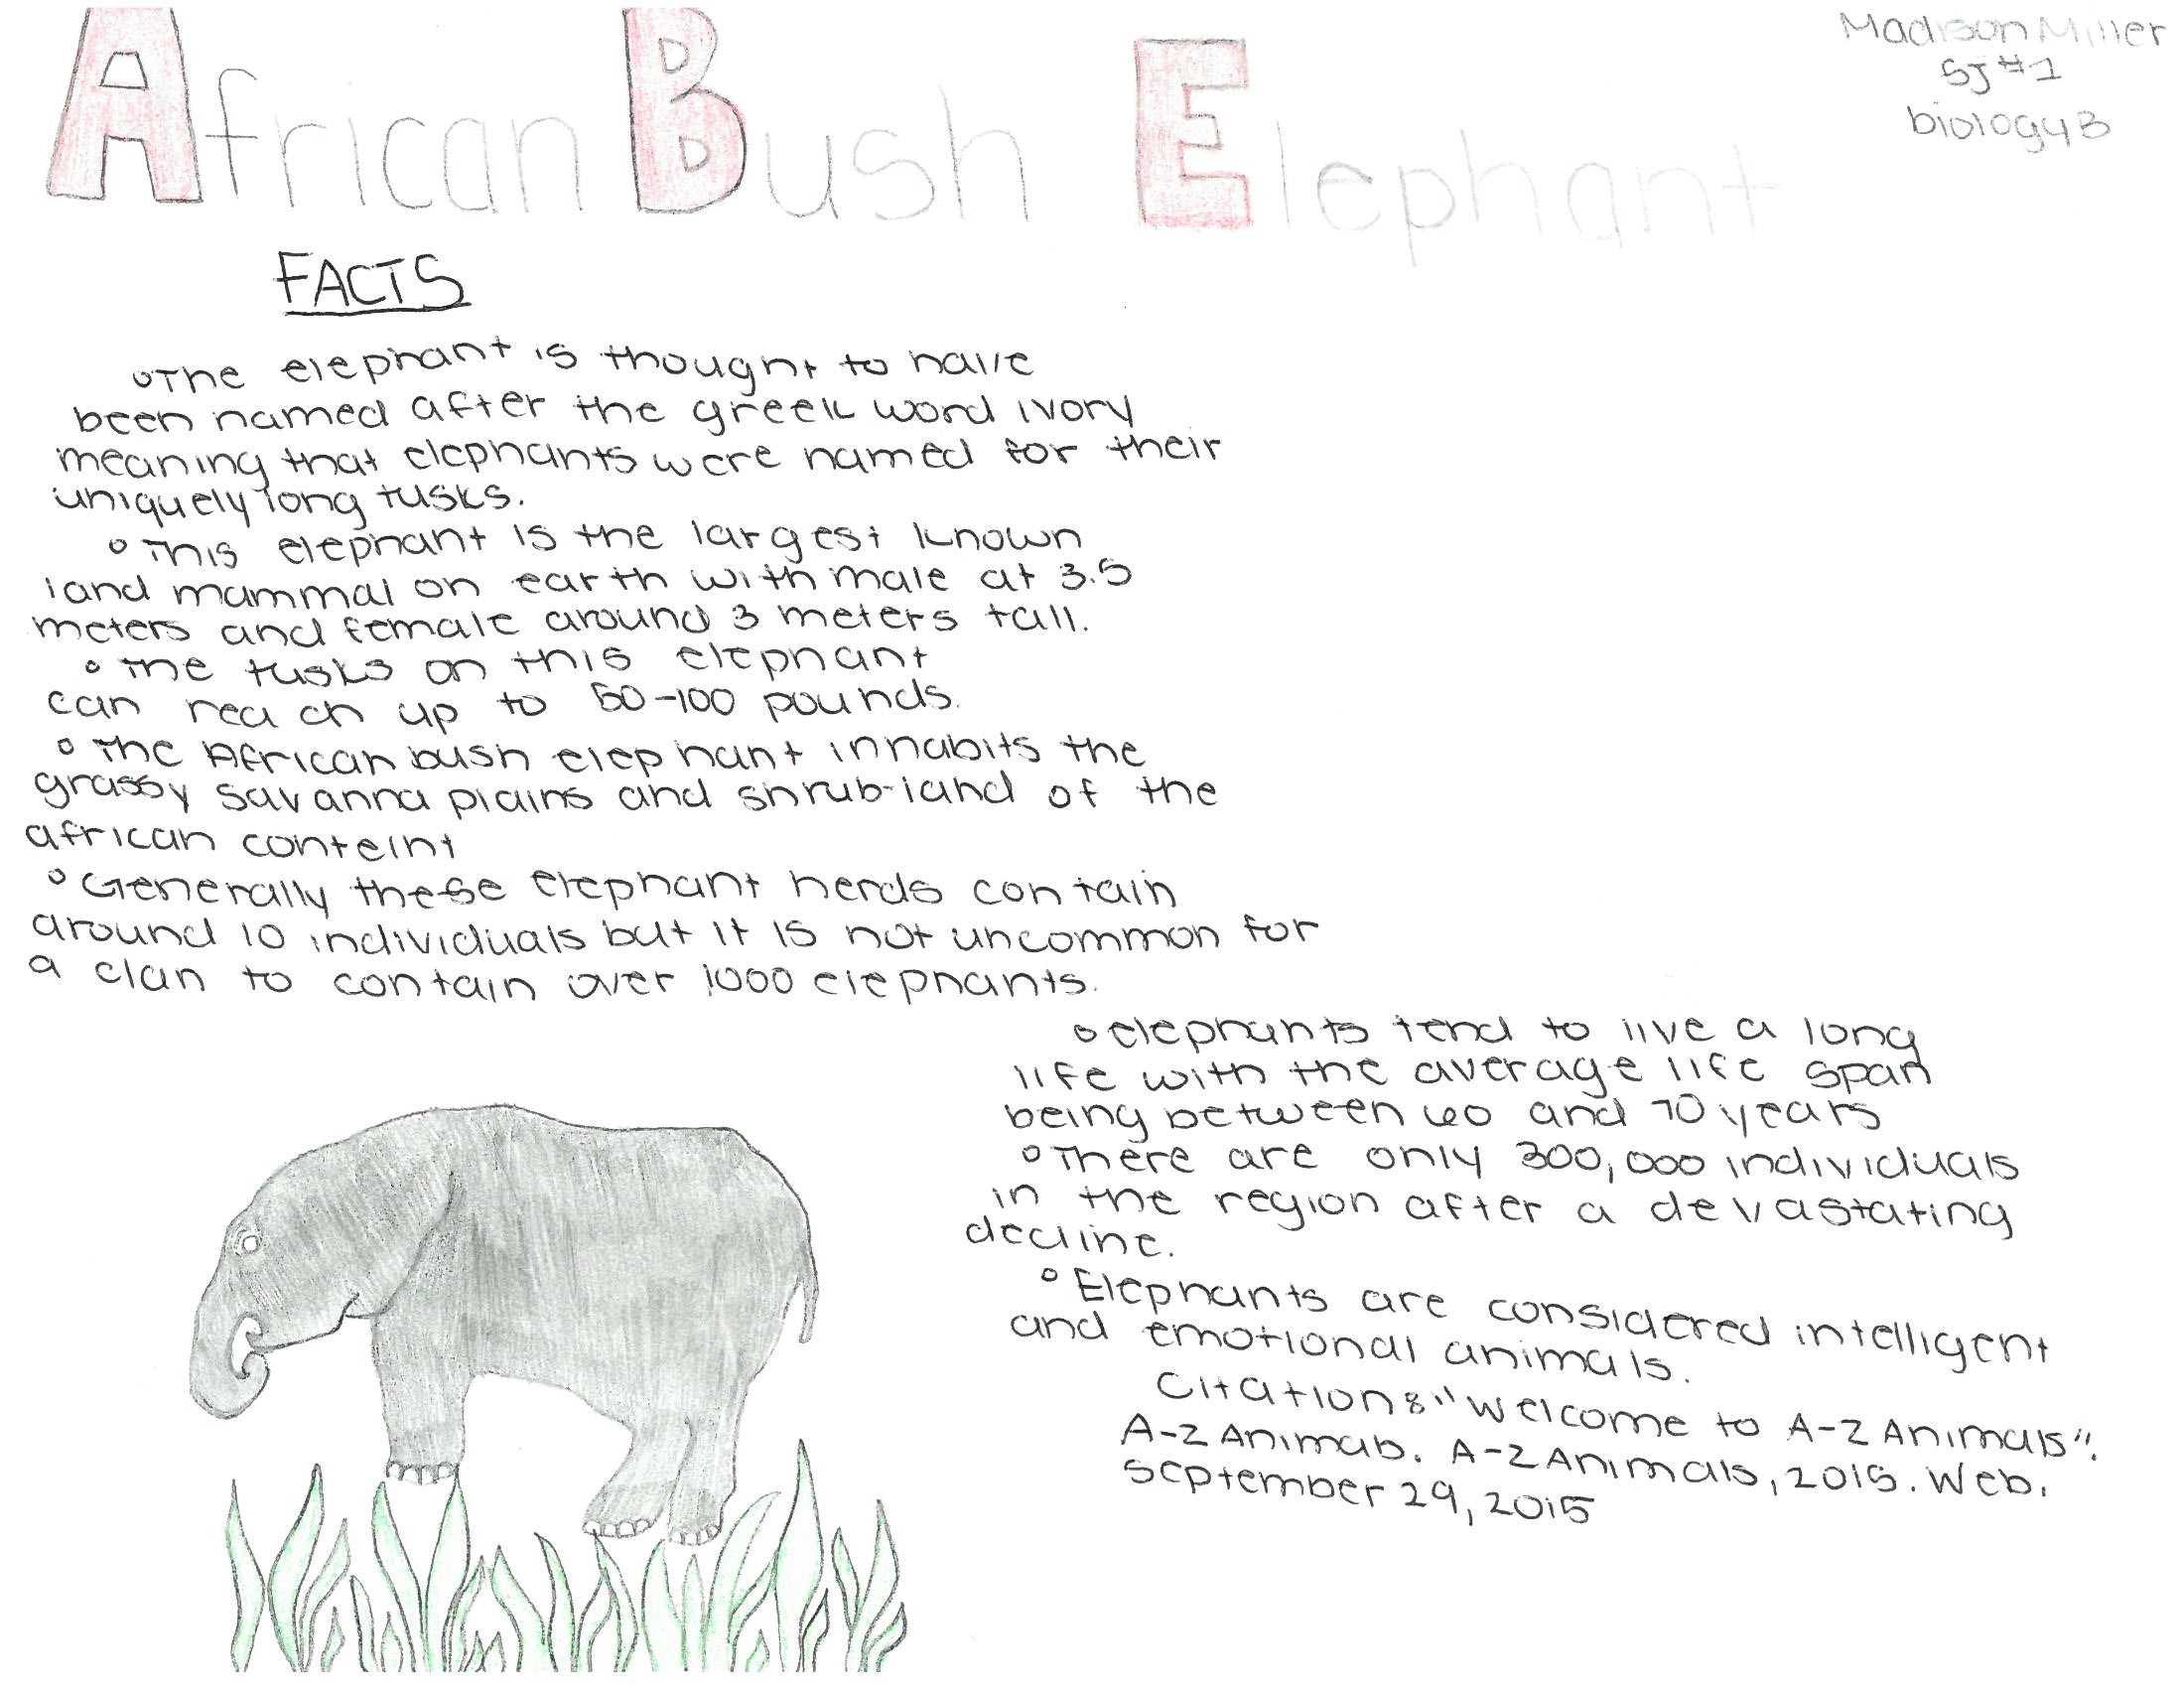 African Bush Elephant
Madison Miller
SJ #1
biology B
FACTS
• The elephant is thought to have
been named after the greek word ivory
meaning that elephants were named for their
uniquely long tusks.
• This elephant is the largest known
land mammal on earth with male at 3.5
meters and female around 3 meters tall.
• The tusks on this elephant
can reach up to 50-100 pounds.
• The African bush elephant inhabits the
grassy savanna plains and shrub-land of the
african conteint
• Generally these elephant herds contain
around 10 individuals but it is not uncommon for
a clan to contain over 1000 elephants.
• elephants tend to live a long
life with the average life span
being between 60 and 70 years
• There are only 300,000 individuals
in the region after a devastating
decline.
• Elephants are considered intelligent
and emotional animals.
Citation: "Welcome to A-Z Animals".
A-Z Animals. A-Z Animals, 2015. Web.
September 29, 2015